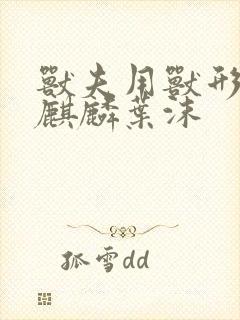 獸夫用獸形
麒麟葉沫
孤雪dd